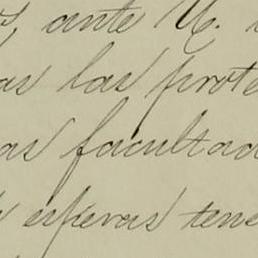 ante U.
las prote
facultad
esperas tene